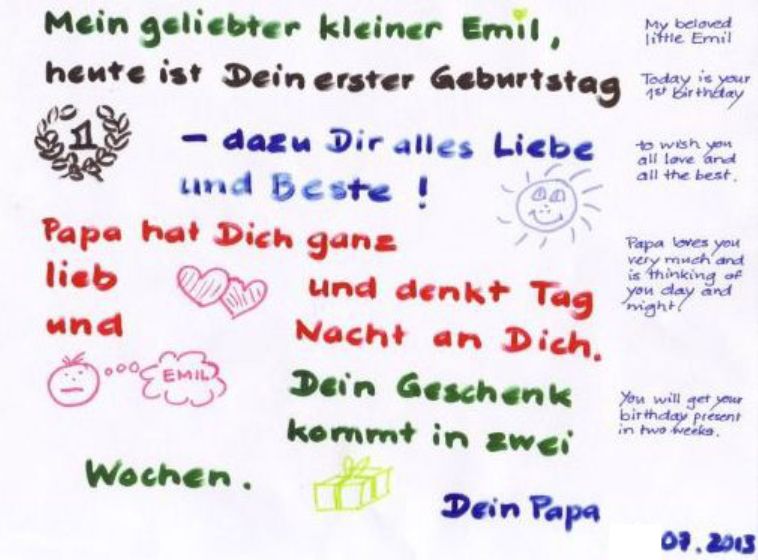 Mein geliebter kleiner Emil,
My beloved
little Emil
heute ist Dein erster Geburtstag
Today is your
1st birthday
1
– dazu Dir alles Liebe
und Beste !
to wish you
all love and
all the best.
Papa hat Dich ganz
lieb und denkt Tag
und Nacht an Dich.
Papa loves you
very much and
is thinking of
you day and
night!
EMIL
Dein Geschenk
kommt in zwei
Wochen.
You will get your
birthday present
in two weeks.
Dein Papa
07.2013